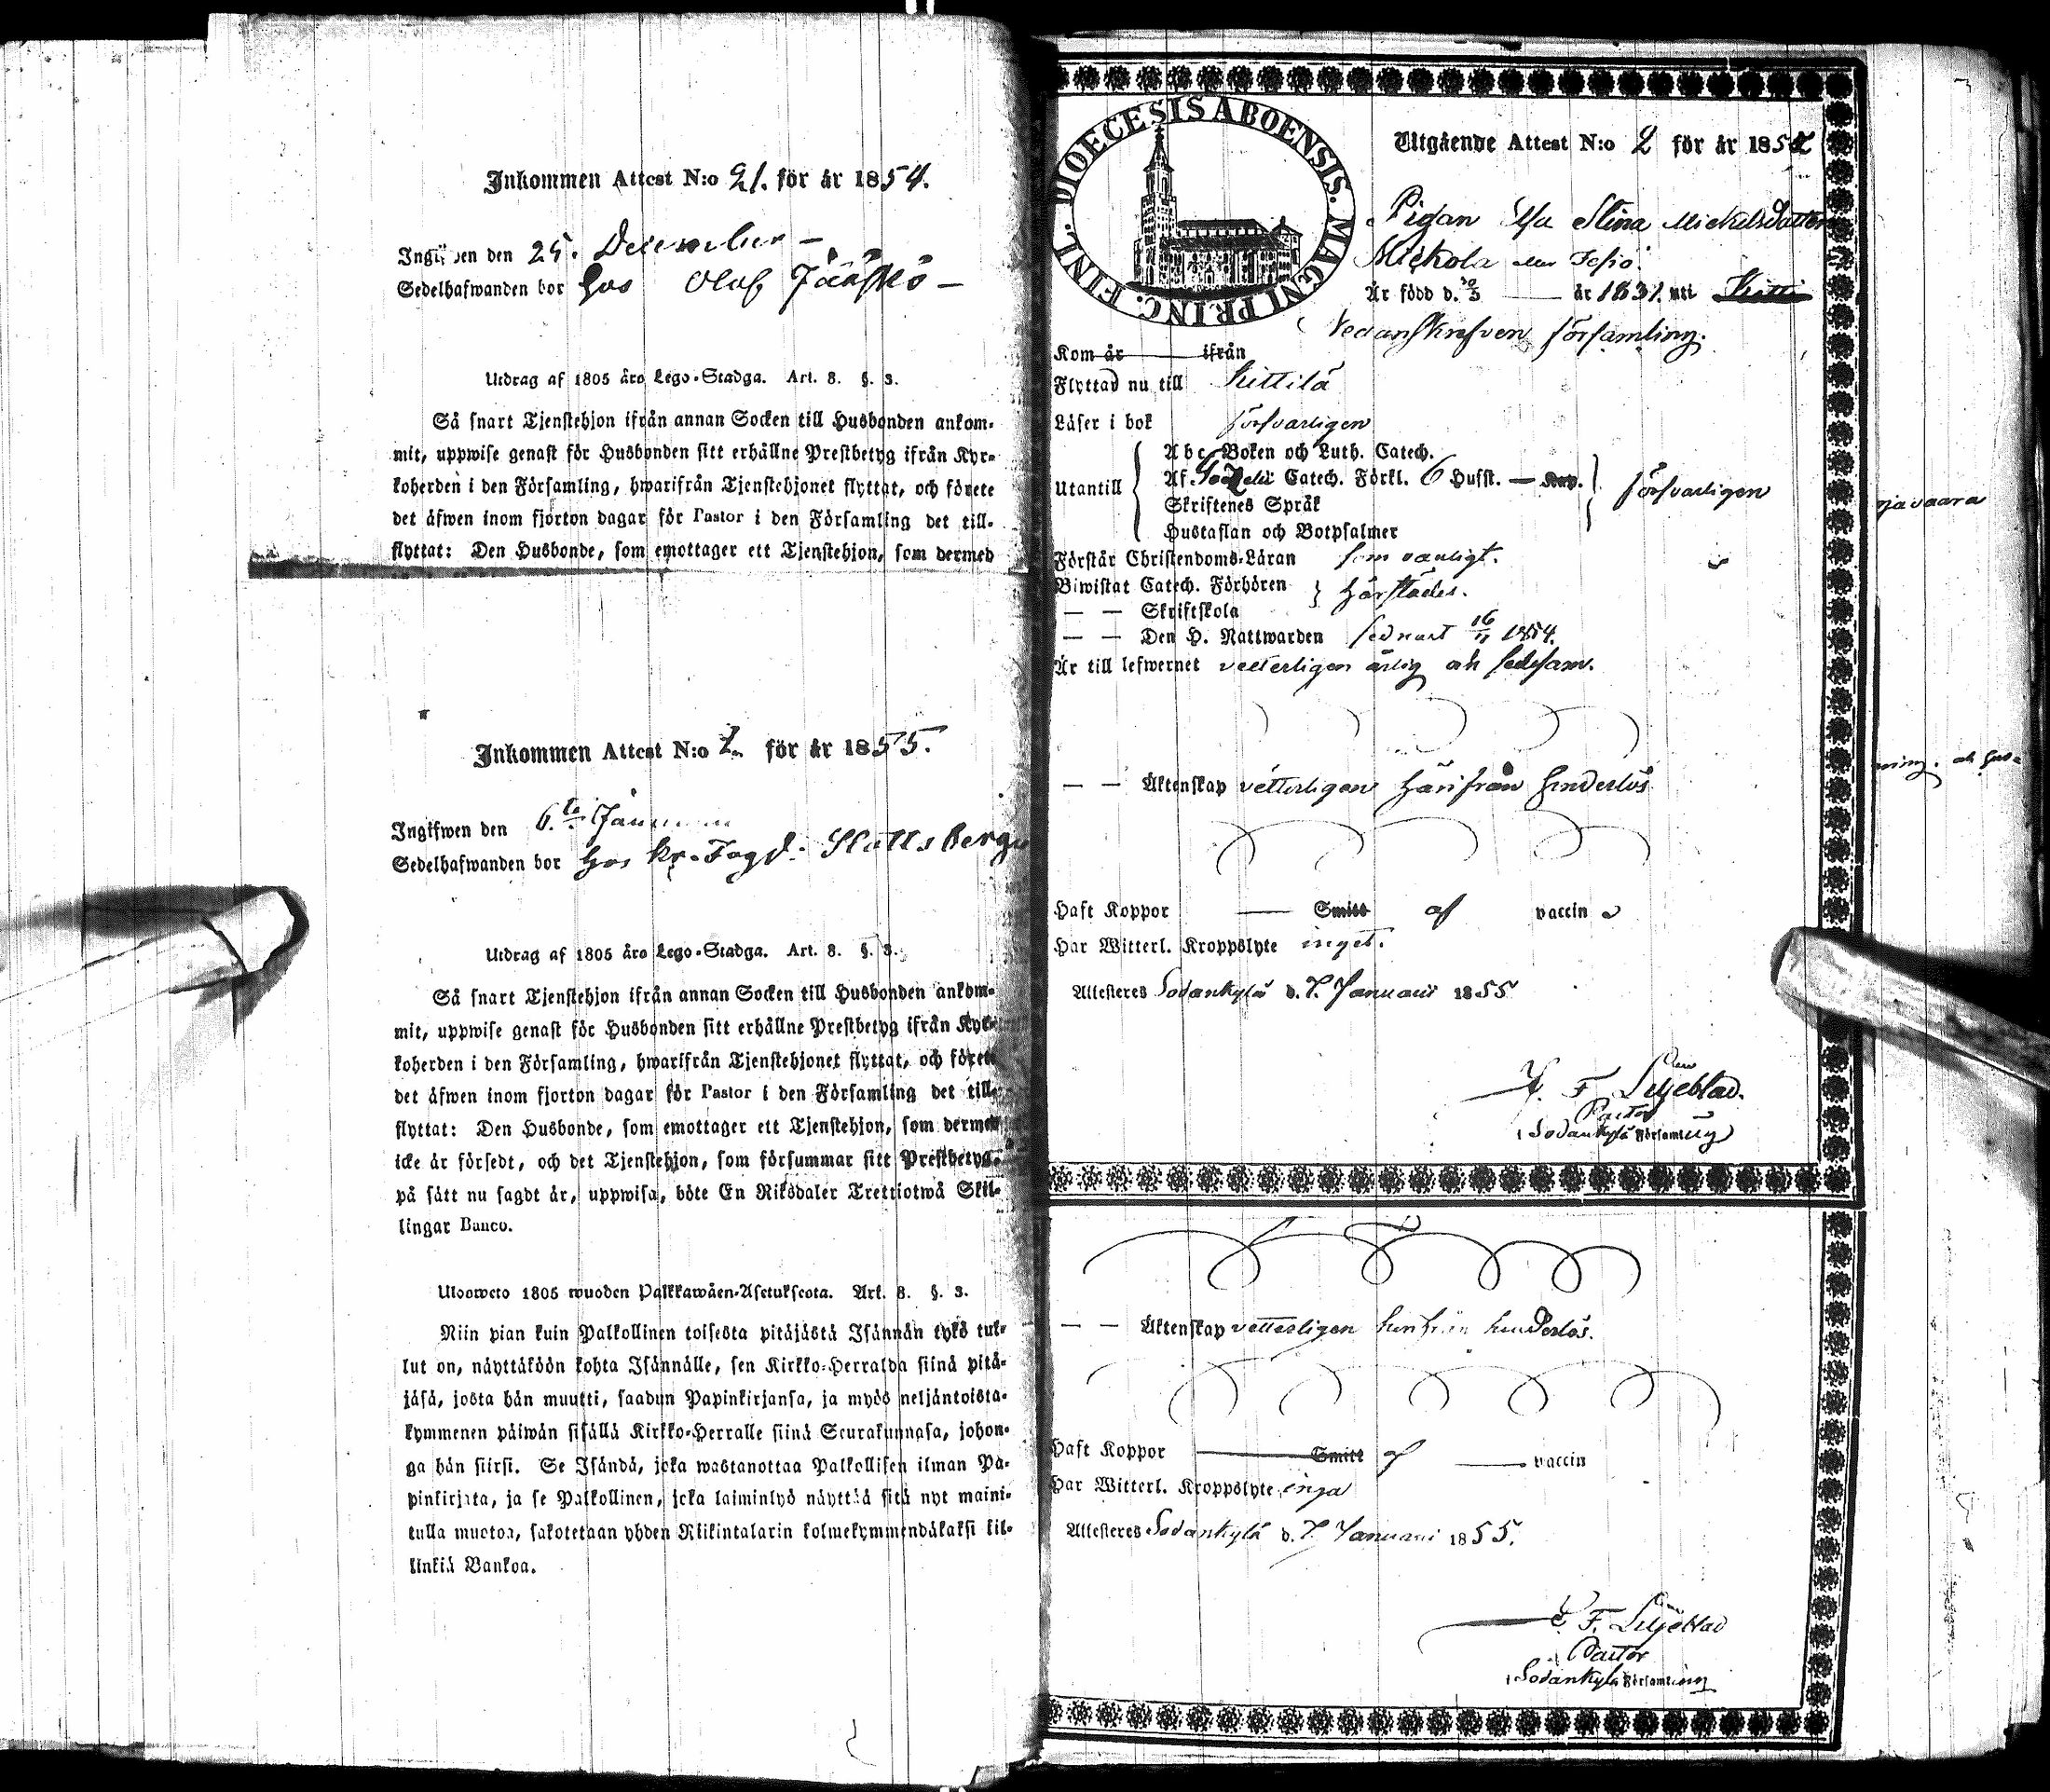 Inkommen Attest N:o 21. för år 1854.
Ingifwen den 25. December –
Sedelhafwanden bor hos Olof Jääskö –
Utdrag af 1805 års Lego-Stadga. Art. 8. §. 3.
Så snart Tjenstehjon ifrån annan Socken till Husbonden ankom-
mit, uppwise genast för Husbonden sitt erhållne Prestbetyg ifrån Kyr-
koherden i den Församling, hwarifrån Tjenstehjonet flyttat, och förete
det äfwen inom fjorton dagar för Pastor i den Församling det till-
flyttat: Den Husbonde, som emottager ett Tjenstehjon, som dermed
Inkommen Attest N:o för år 1855.
Ingifwen den 6.te
Sedelhafwanden bor hos Kr. Fogd.
Utdrag af 1805 års Lego-Stadga. Art. 8. §. 3.
Så snart Tjenstehjon ifrån annan Socken till Husbonden ankom-
mit, uppwise genast för Husbonden sitt erhållne Prestbetyg ifrån Kyr-
koherden i den Församling, hwarifrån Tjenstehjonet flyttat, och förete
det äfwen inom fjorton dagar för Pastor i den Församling det till-
flyttat: Den Husbonde, som emottager ett Tjenstehjon, som dermed
icke är försedt, och det Tjenstehjon, som försummar sitt Prestbetyg,
på sätt nu sagdt är, uppwisa, böte En Riksdaler Trettiotwå Skil-
lingar Banco.
Uloosweto 1805 wuoden Palkkawäen-Asetuksesta. Art. 8. §. 3.
Niin pian kuin Palkollinen toisesta pitäjästä Isännän tykö tul-
lut on, näyttäköön kohta Isännälle, sen Kirkko-Herralda siinä pitä-
jäsä, josta hän muutti, saadun Papinkirjansa, ja myös neljäntoista-
kymmenen päiwän sisällä Kirkko-Herralle siinä Seurakunnasa, johon-
ga hän siirsi. Se Isändä, joka wastanottaa Palkollisen ilman Pa-
pinkirjata, ja se Palkollinen, joka laiminlyö näyttää sitä nyt maini-
tulla muotoa, sakotetaan yhden Riikintalarin kolmekymmendäkaksi kil-
linkiä Bankoa.
DIOECESIS ABOENSIS. MAGNI PRINC. FINL.
Utgående Attest N:o 2 för år 185
Pigan Stina Mickelsdotter
Mickola
Är född d. 20/3 — år 1831. uti
Nedanskrefven församling.
Kom år ifrån
Flyttad nu till Kittilä
Läser i bok försvarligen
Utantill
Abc-Boken och Luth. Catech.
Af Catech. Förkl. 6 Hufst. — Kap.
försvarligen
Skriftenes Språk
Hustaflan och Botpsalmer
Förstår Christendoms-Läran som vanligt.
Biwistat Catech. Förhören
härstädes.
— — Skriftskola
— — Den H. Nattwarden sednast 16/11 1854.
Är till lefwernet vetterligen ärlig och sedesam.
— — Äktenskap vetterligen härifrån hinderlös
Haft Koppor — Smitt af vaccin
Har Witterl. Kroppslyte inget.
Attesteras Sodankylä d. 7. Januari 1855
F. Liljeblad.
Pastor
i Sodankylä Församling
— — Äktenskap vetterligen härifrån hinderlös.
Haft Koppor — Smitt af — vaccin
Har Witterl. Kroppslyte inga
Attesteras Sodankylä d. 7. Januari 1855.
F. Liljeblad
Pastor
i Sodankylä Församling